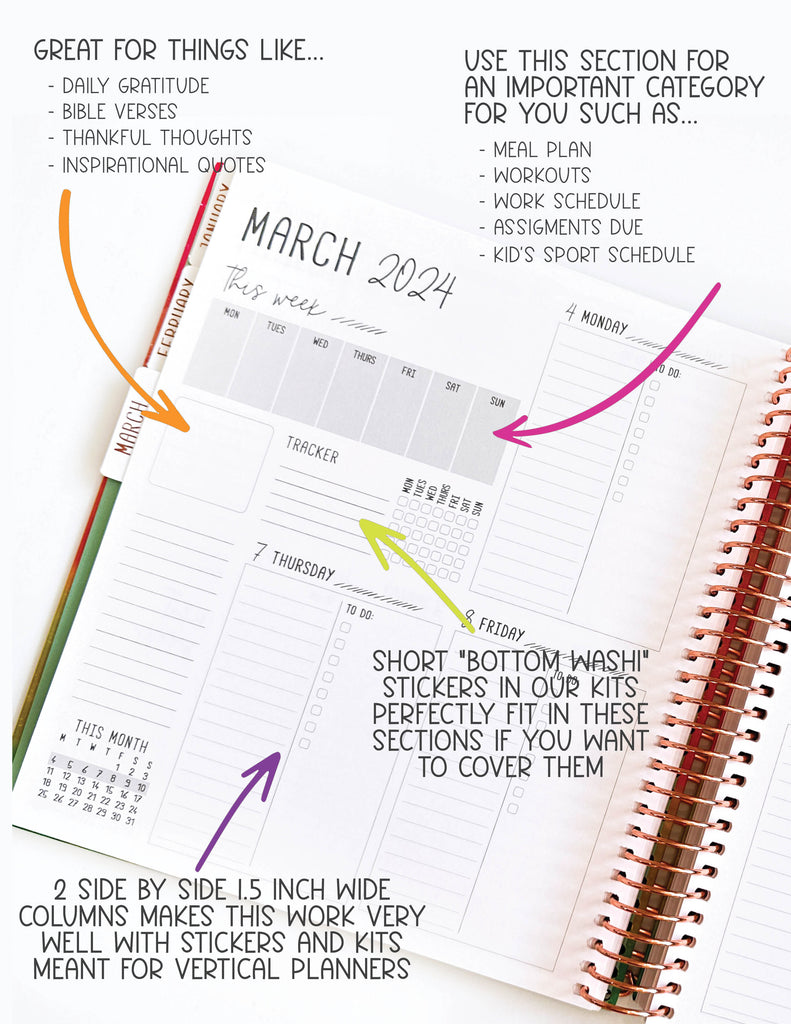 GREAT FOR THINGS LIKE...
- DAILY GRATITUDE
- BIBLE VERSES
- THANKFUL THOUGHTS
- INSPIRATIONAL QUOTES
USE THIS SECTION FOR
AN IMPORTANT CATEGORY
FOR YOU SUCH AS...
- MEAL PLAN
- WORKOUTS
- WORK SCHEDULE
- ASSIGMENTS DUE
- KID'S SPORT SCHEDULE
JANUARY
FEBRUARY
MARCH
MARCH 2024
This week
MON TUES WED THURS FRI SAT SUN
4 MONDAY
TO DO:
TRACKER
MON TUES WED THURS FRI SAT SUN
7 THURSDAY
TO DO:
8 FRIDAY
TO DO:
SHORT "BOTTOM WASHI"
STICKERS IN OUR KITS
PERFECTLY FIT IN THESE
SECTIONS IF YOU WANT
TO COVER THEM
THIS MONTH
M T W T F S S
1 2 3
4 5 6 7 8 9 10
11 12 13 14 15 16 17
18 19 20 21 22 23 24
25 26 27 28 29 30 31
2 SIDE BY SIDE 1.5 INCH WIDE
COLUMNS MAKES THIS WORK VERY
WELL WITH STICKERS AND KITS
MEANT FOR VERTICAL PLANNERS